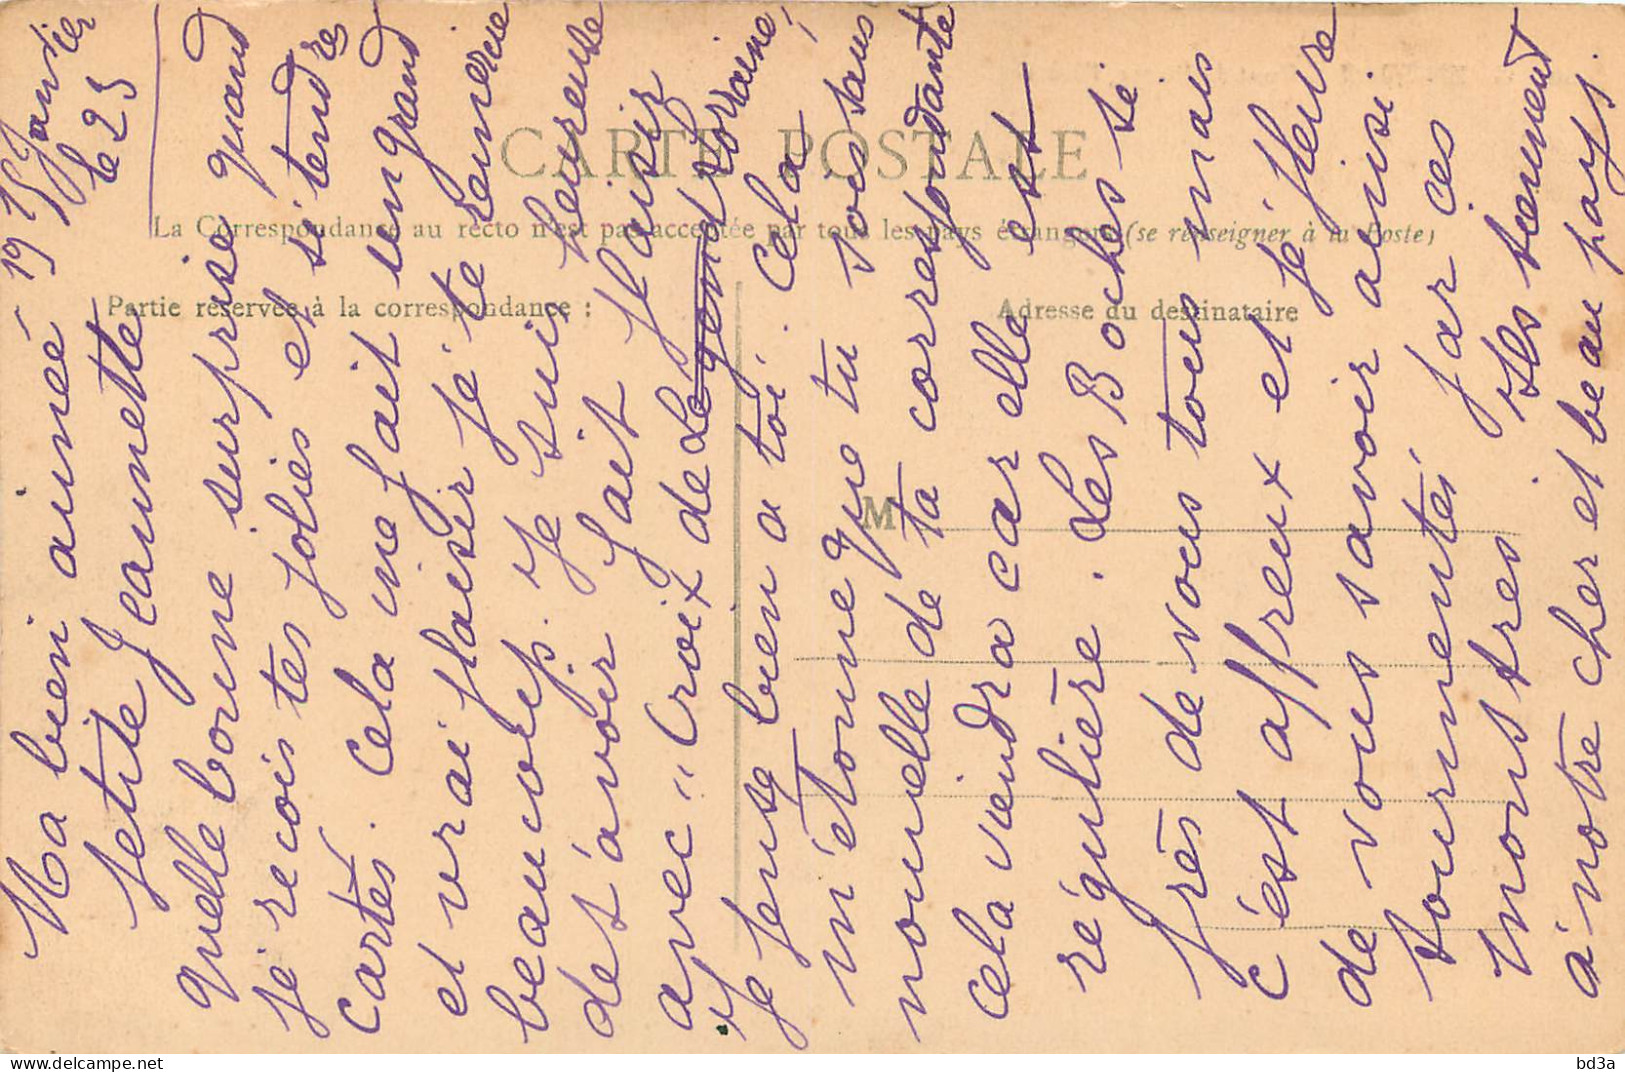 CARTE POSTALE
La Correspondance au recto n'est pas acceptée par tous les pays étrangers (se renseigner à la Poste)
Partie réservée à la correspondance :
Adresse du destinataire
M
1915 Janvier
le 25
Ma bien aimée
petite Jeannette
quelle bonne surprise quand
je recois tes jolies et si tendres
cartes. cela me fait un grand
et vrai plaisir je te remercie
beaucoup. Je suis heureuse
de t'avoir fait plaisir
avec "Croix de Lorraine,
Je pense bien a toi. Cela
m'étonne que tu sois sans
nouvelle de ta correspondante
cela viendra car elle est
régulière. Les Boches si
près de vous tous mais
c'est affreux et je pleure
de vous savoir ainsi
tourmentés par ces
monstres. Ils tiennent
à notre cher et beau pays.
bd3a